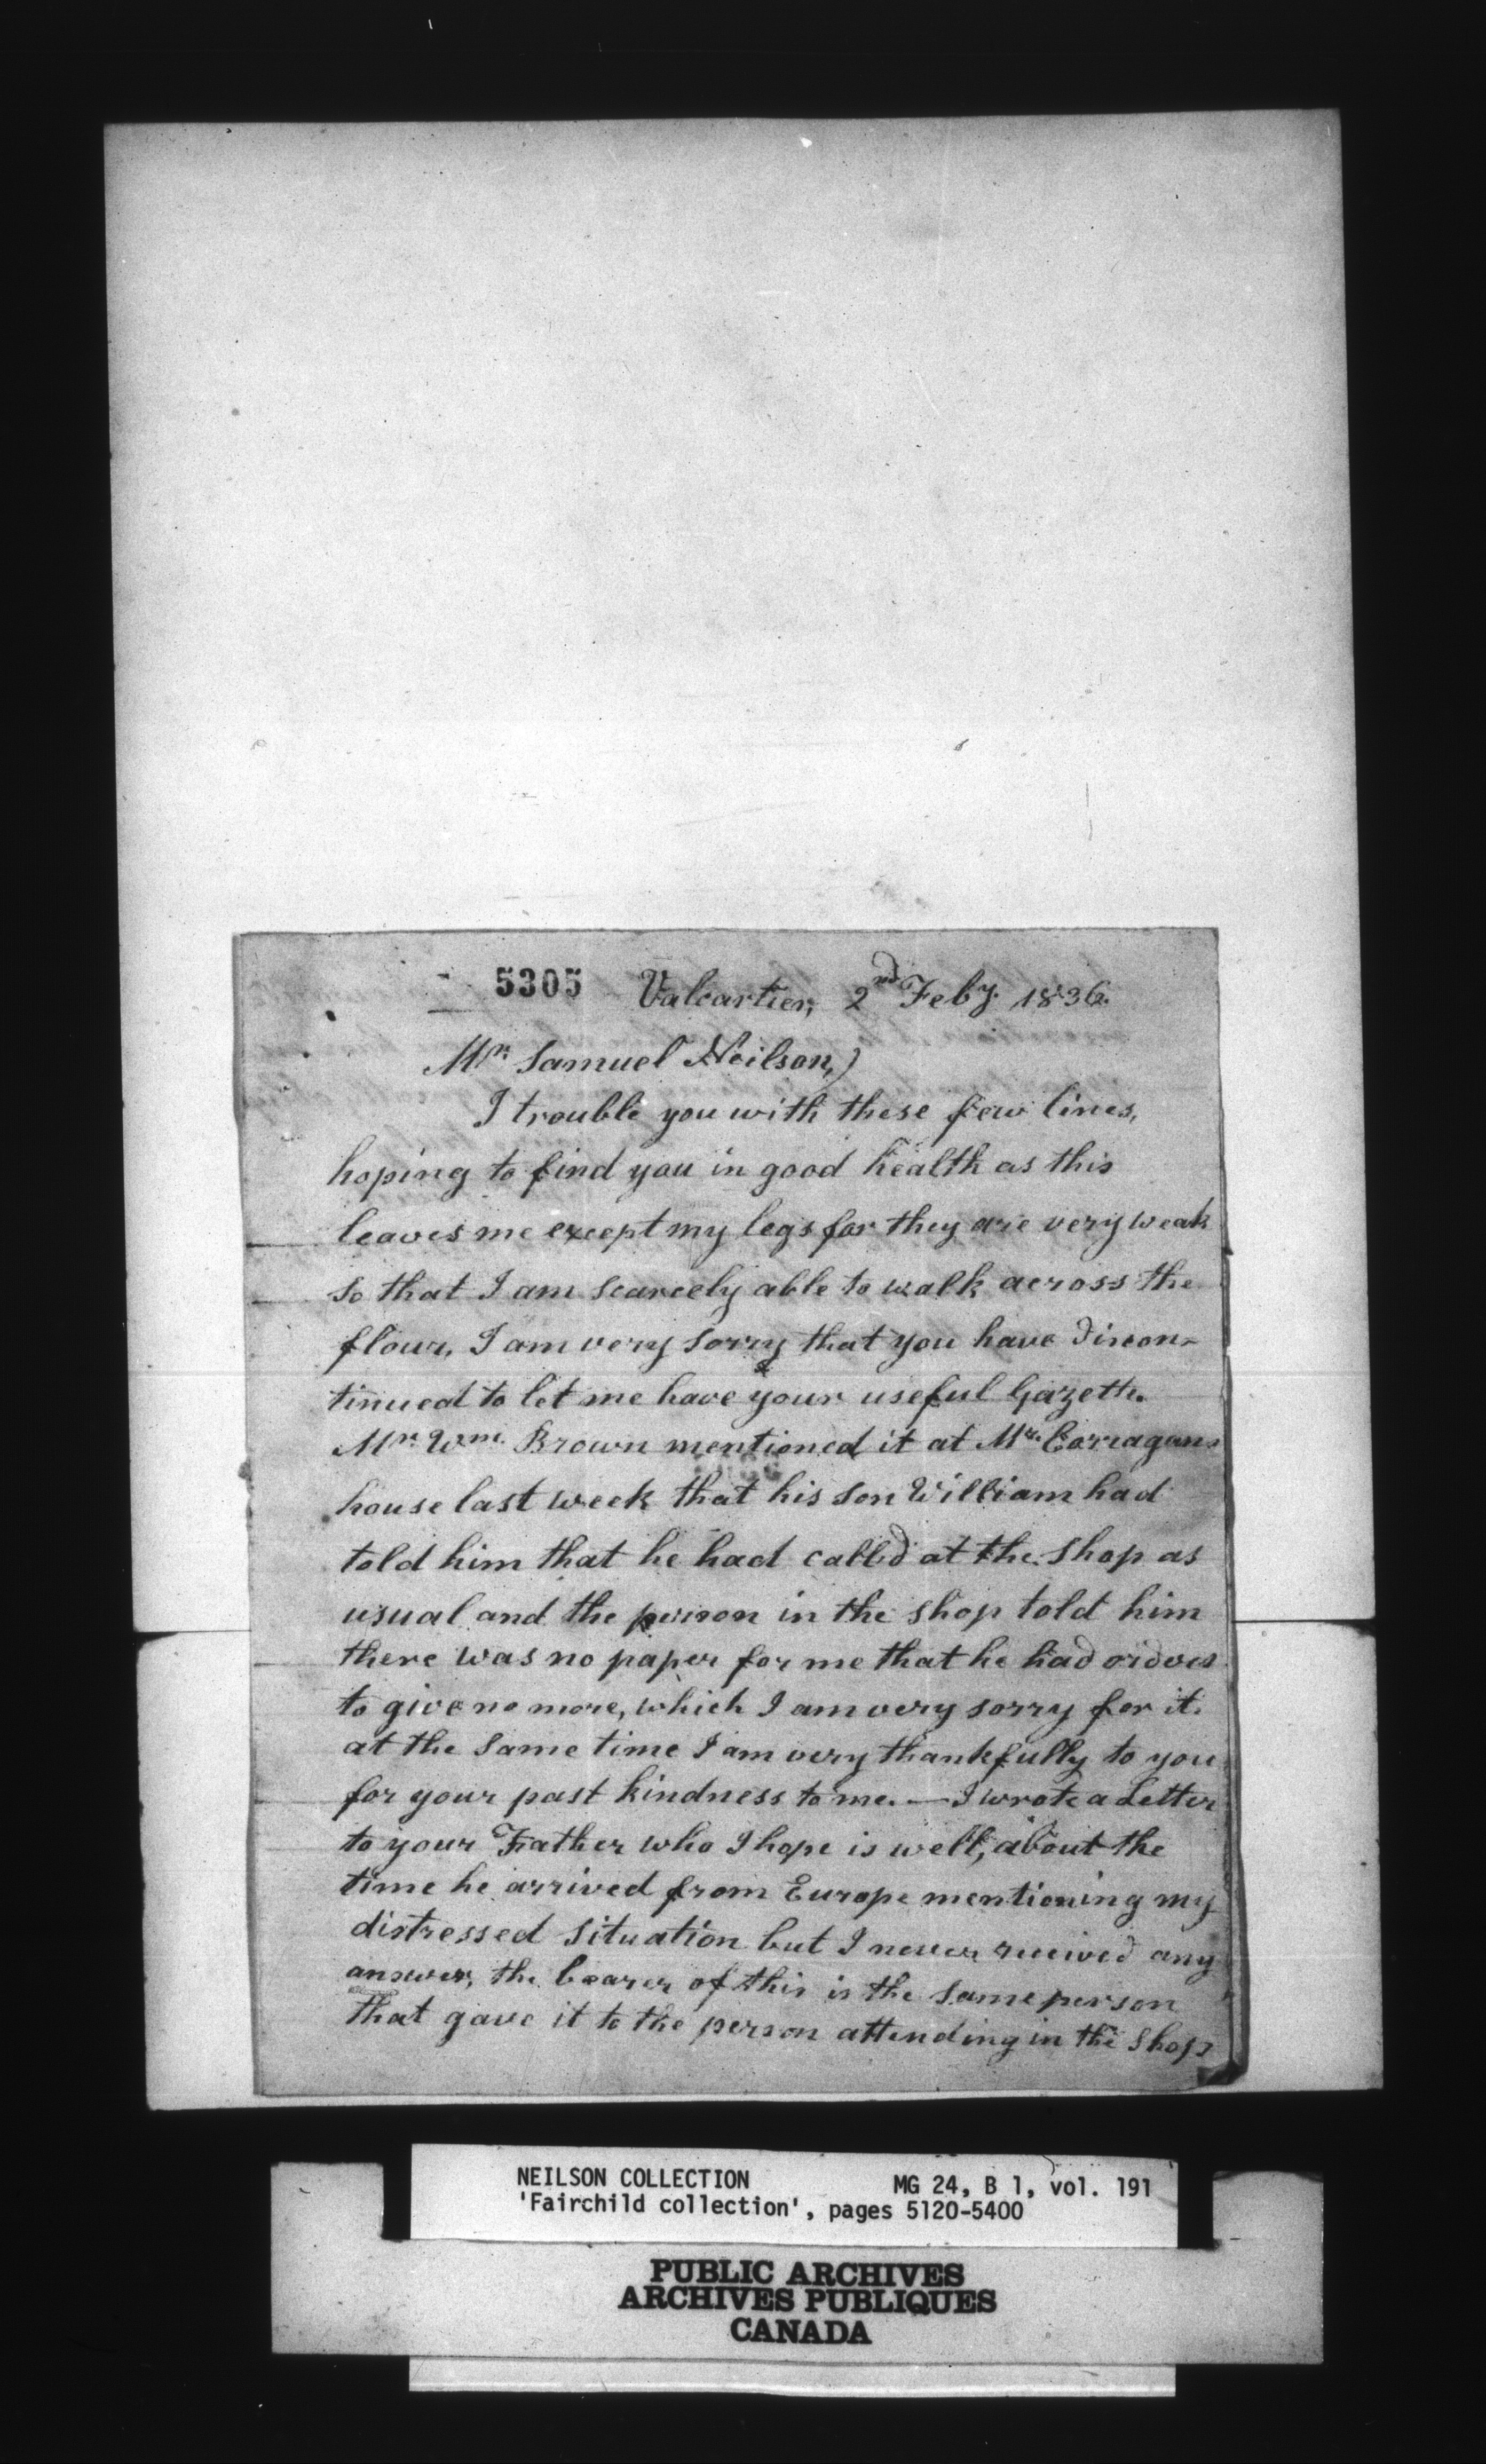 5305 Valcartier, 2nd Feby. 1836.
Mr. Samuel Neilson,)
I trouble you with these few lines,
hoping to find you in good health as this
leaves me except my legs for they are very weak
so that I am scarcely able to walk across the
flour, I am very sorry that you have discon-
tinued to let me have your useful Gazette.
Mr. Wm. Brown mentioned it at Mr. Corragans
house last week that his son William had
told him that he had called at the shop as
usual and the person in the shop told him
there was no paper for me that he had orders
to give no more, which I am very sorry for it.
at the same time I am very thankfully to you
for your past kindness to me. — I wrote a Letter
to your Father who I hope is well, about the
time he arrived from Europe mentioning my
distressed situation but I never received any
answer, the bearer of this is the same person
that gave it to the person attending in the shop
NEILSON COLLECTION MG 24, B 1, vol. 191
'Fairchild collection', pages 5120-5400
PUBLIC ARCHIVES
ARCHIVES PUBLIQUES
CANADA